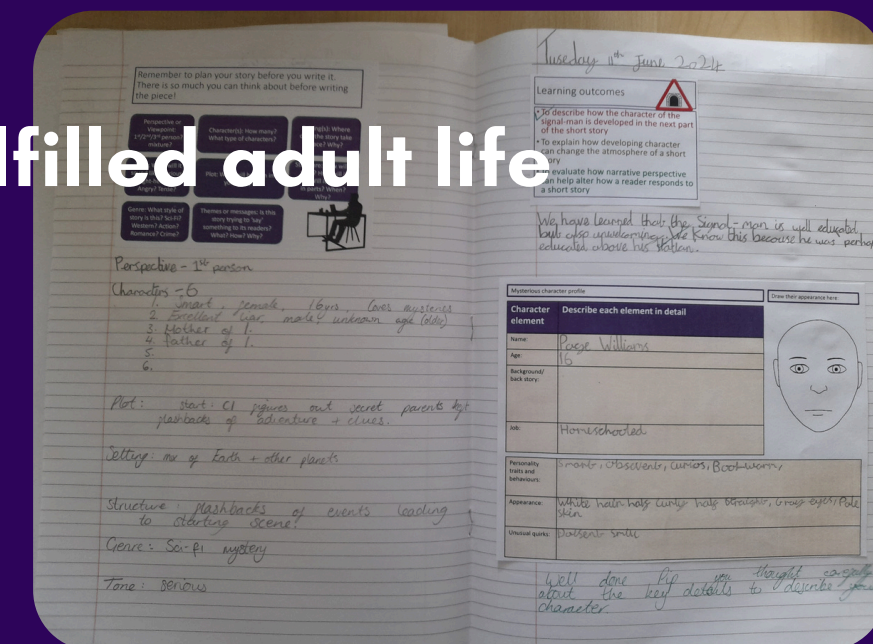 lfilled adult life
Remember to plan your story before you write it.
There is so much you can think about before writing
the piece!
Perspective or
Viewpoint:
1st/2nd/3rd person?
mixture?
Character(s): How many?
What type of characters?
Where
the story take
Why?
Angry? Tense?
Plot:
in parts? When?
Why?
Genre: What style of
story is this? Sci-Fi?
Western? Action?
Romance? Crime?
Themes or messages: Is this
story trying to 'say'
something to its readers?
What? How? Why?
Perspective - 1st person
Characters - 6
1. Smart, female, 16yrs, loves mysteries
2 Excellent liar, male, unknown age (older)
3. Mother of 1.
4. Father of 1.
5.
6.
Plot: start: C1 figures out secret parents kept
flashbacks of adventure + clues.
Setting: mix of Earth + other planets
Structure: flashbacks of events leading
to starting scene!
Genre: Sci-fi mystery
Tone: serious
Tuesday 11th June 2024
Learning outcomes
• To describe how the character of the
signal-man is developed in the next part
of the short story
• To explain how developing character
can change the atmosphere of a short
story
evaluate how narrative perspective
can help alter how a reader responds to
a short story
We have learned that the Signal-man is well educated,
but also unwelcoming. We know this because he was perhap
educated above his station.
Mysterious character profile
Draw their appearance here
Character
element
Describe each element in detail
Name: Paige Williams
Age: 16
Background/
back story:
Job: Homeschooled
Personality
traits and
behaviours:
Smart, Obsevent, Curios, Bookworm,
Appearance: White hair half Curly half Straight, Gray eyes, Pale
skin
Unusual quirks: Dosent smile
Well done Pip you thought carefully
about the key details to describe your
character.